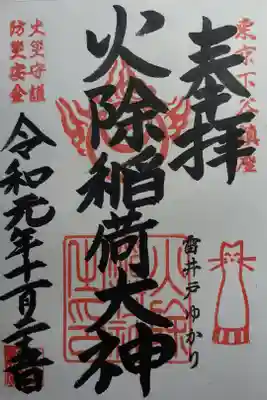 東京下谷鎮座
奉拝
雷井戸ゆかり
火除稲荷大神
火災守護
防災安全
令和元年十一月二十三日